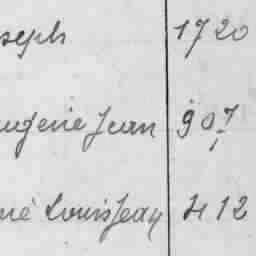 seph 1720
ugenie Jean 907
né Louis Jean 412